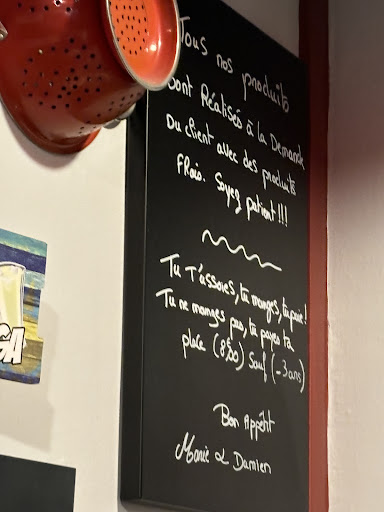 Tous nos produits
sont Réalisés à la Demande
Du client avec des produits
Frais. Soyez patient !!!
Tu t'assoies, tu manges, tu paie !
Tu ne manges pas, tu payes ta
place (8€50) Sauf (-3ans)
Bon Appétit
Marie & Damien
GA